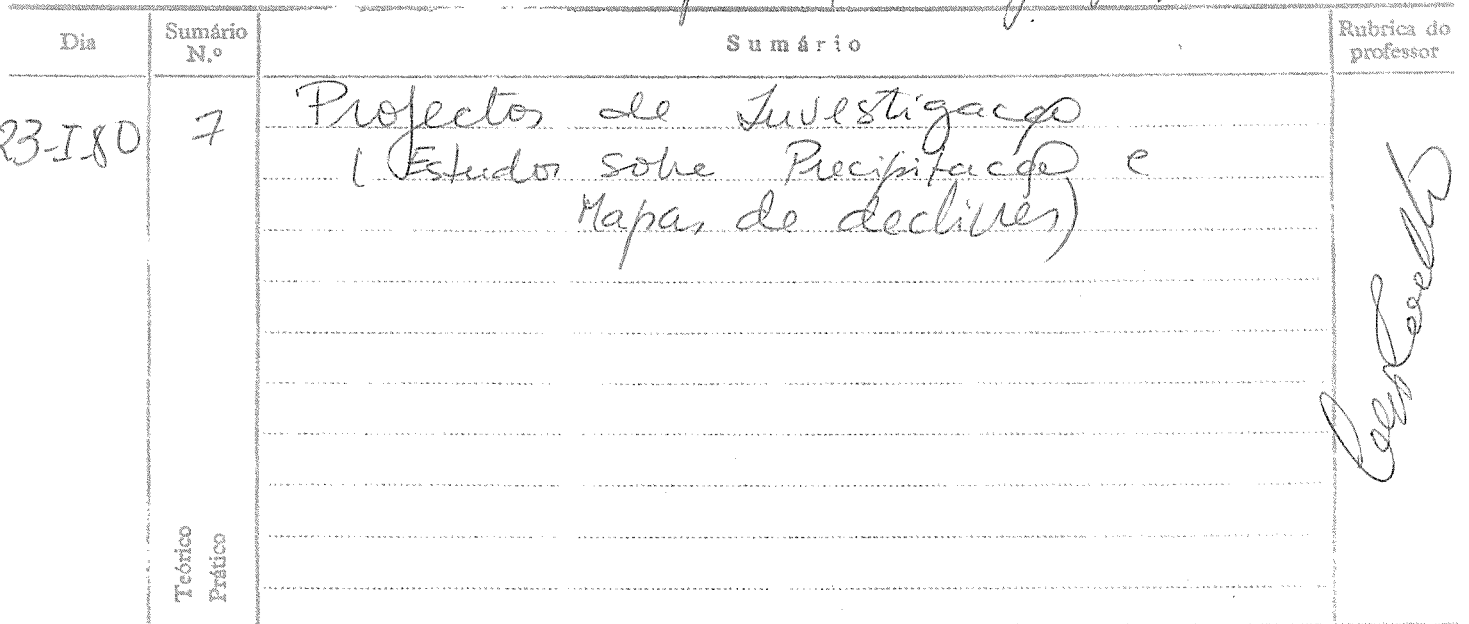 Dia Sumário N.º Sumário Rubrica do professor
23-I-80 7 Projectos de Investigação
(Estudos sobre Precipitação e
Mapas de declives)
Teórico
Prático